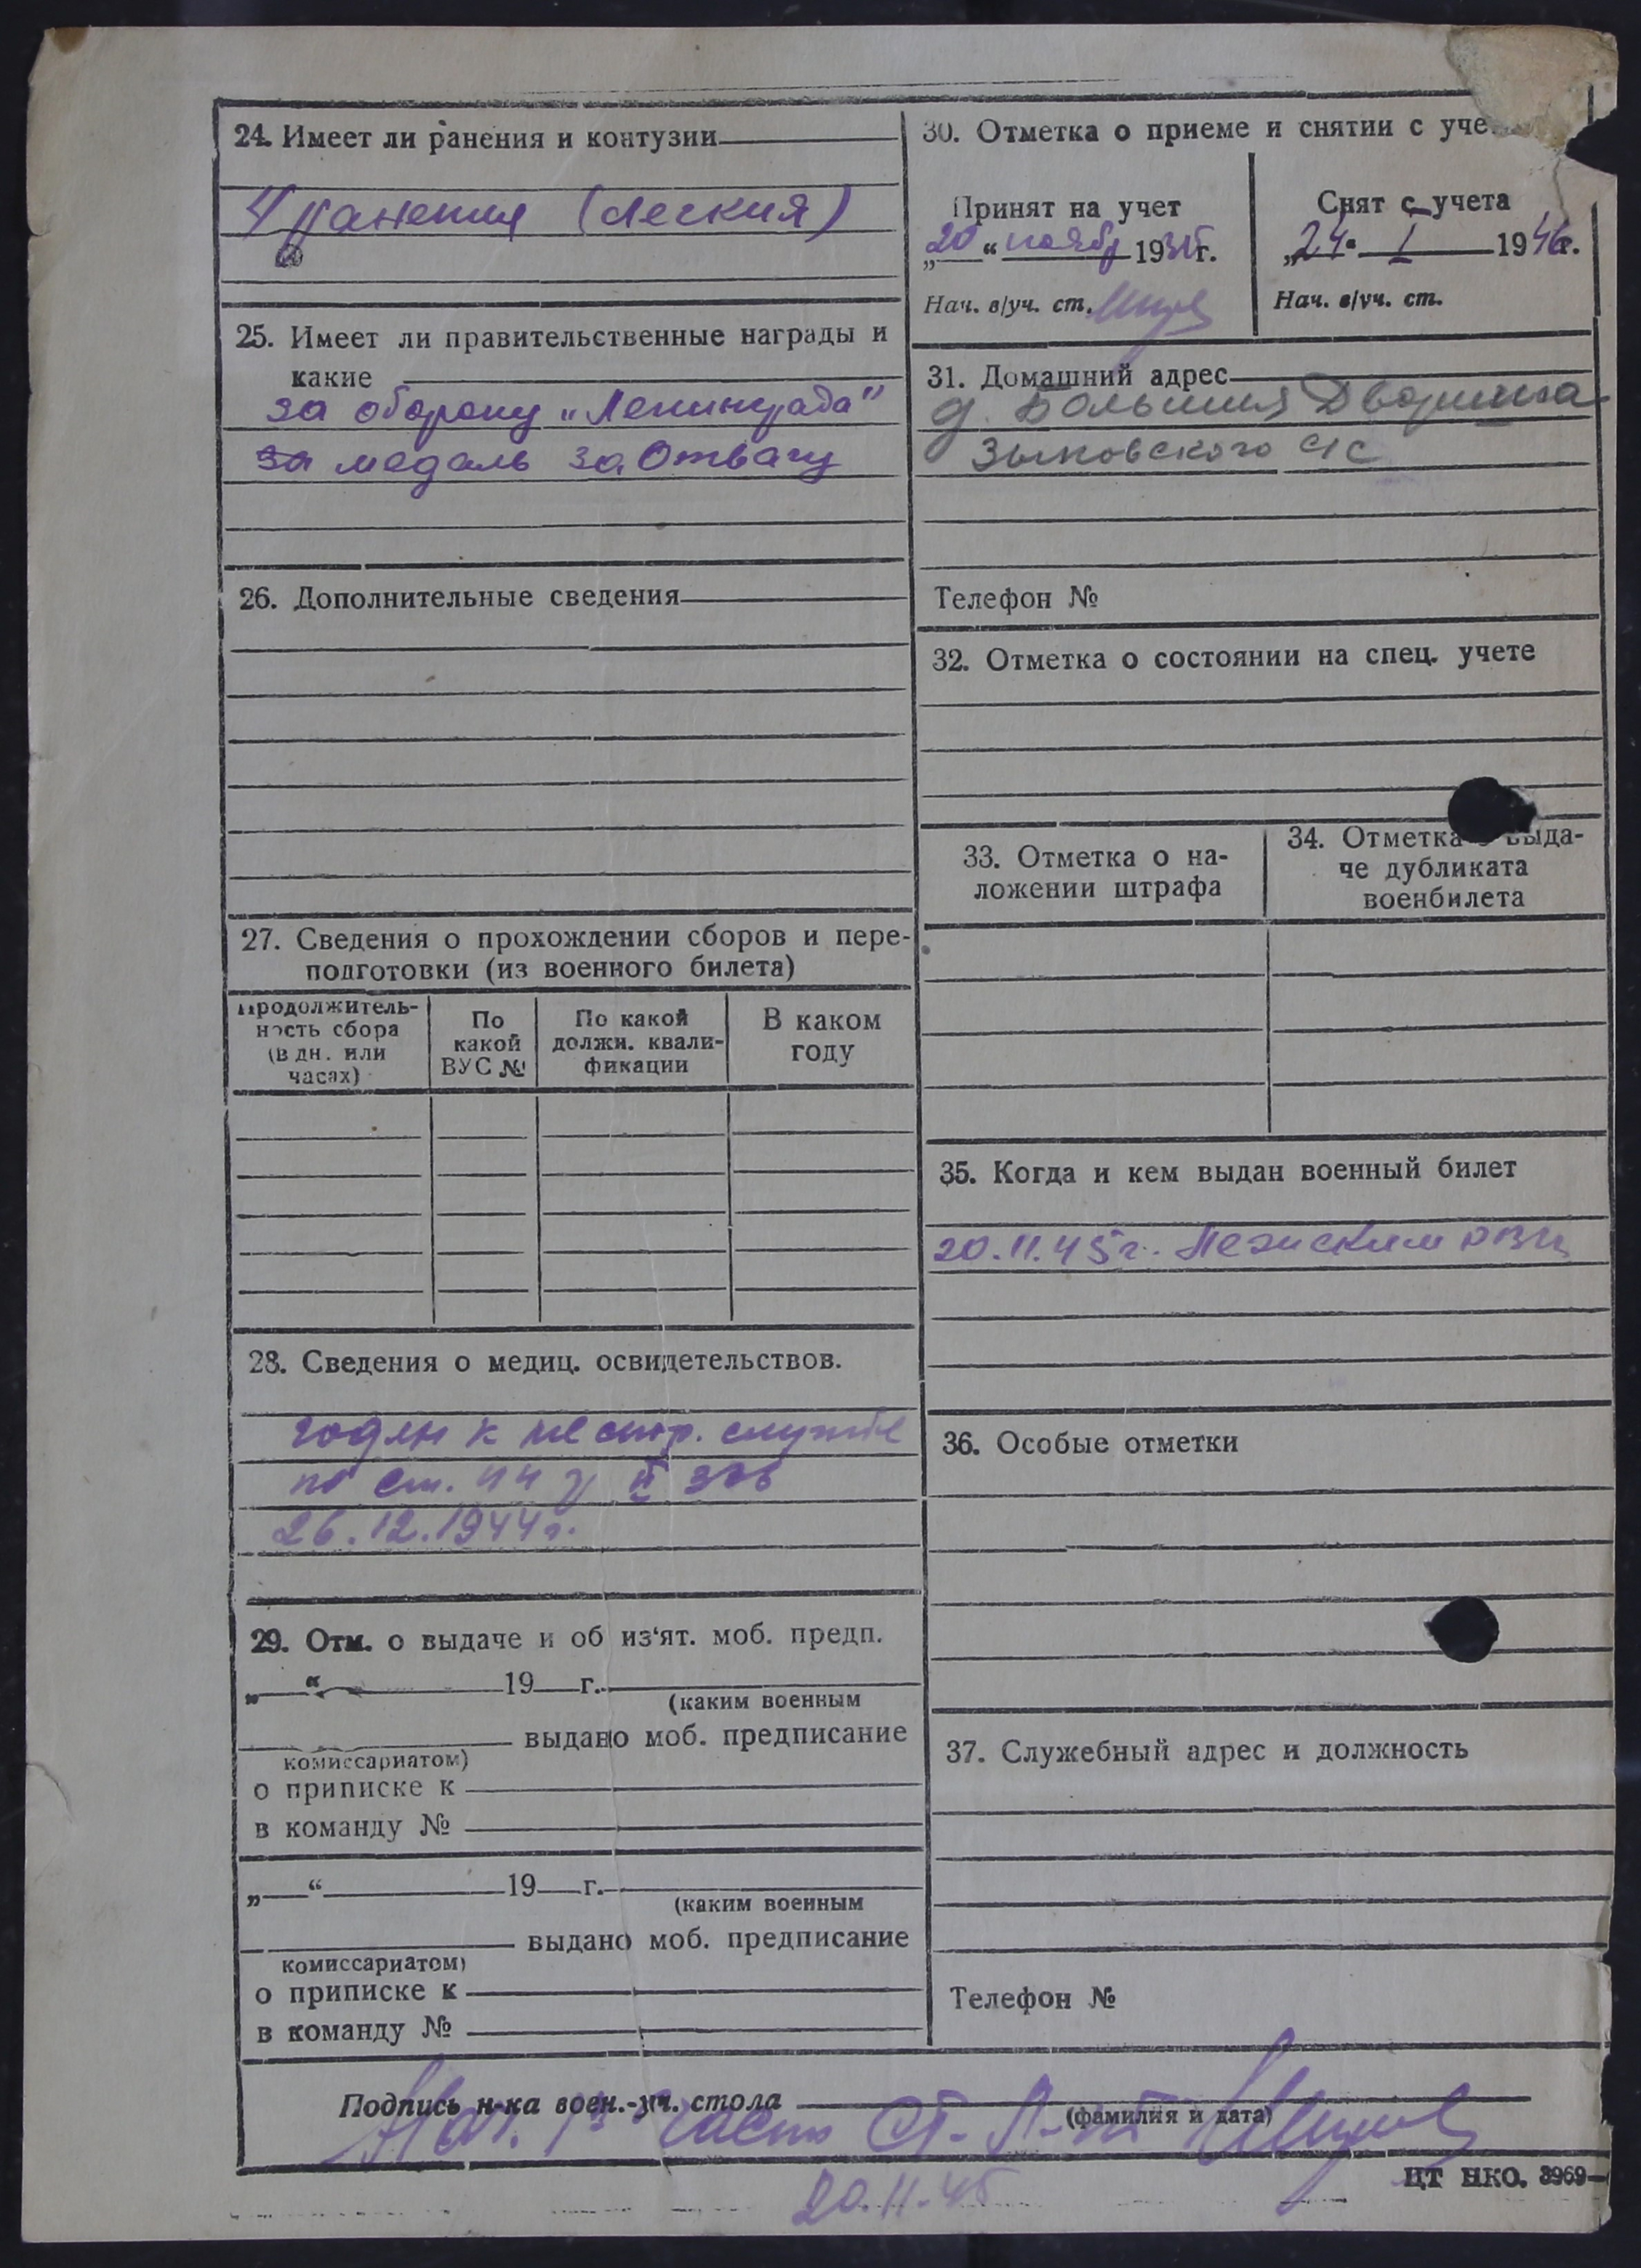 24. Имеет ли ранения и контузии
4 ранения (легкия)
25. Имеет ли правительственные награды и
какие
за оборону „Ленинграда"
за медаль за Отвагу
26. Дополнительные сведения
27. Сведения о прохождении сборов и пере-
подготовки (из военного билета)
Продолжитель-
ность сбора
(в дн. или
часах)
По
какой
ВУС №
По какой
должн. квали-
фикации
В каком
году
28. Сведения о медиц. освидетельствов.
годен к нестр. службе
по ст. 44 II
26.12.1944г.
29. Отм. о выдаче и об из'ят. моб. предп.
„ “ 19 г.
(каким военным
выдано моб. предписание
комиссариатом)
о приписке к
в команду №
„ “ 19 г.
(каким военным
выдано моб. предписание
комиссариатом)
о приписке к
в команду №
30. Отметка о приеме и снятии с уче
Принят на учет
„20“ ноябр 1945г.
Нач. в/уч. ст.
Снят с учета
„24" I 1946г.
Нач. в/уч. ст.
31. Домашний адрес
д. Большия Дворища
Зыковского с/с
Телефон №
32. Отметка о состоянии на спец. учете
33. Отметка о на-
ложении штрафа
34. Отметка о выда-
че дубликата
военбилета
35. Когда и кем выдан военный билет
20.11.45г. РВК
36. Особые отметки
37. Служебный адрес и должность
Телефон №
Подпись н-ка воен.-уч. стола
(фамилия и дата)
Нач. части Ст. Л-нт
20.11.45
ЦТ НКО. 3969—